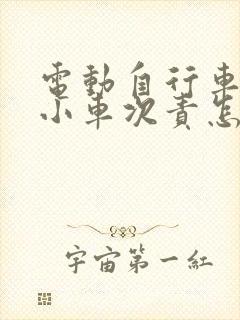 電動自行車
小車次責怎
宇宙第一紅